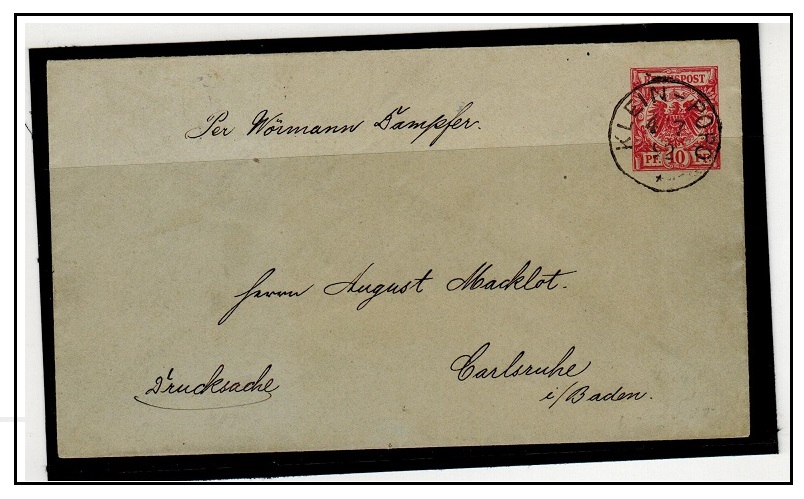 REICHSPOST
KLEIN-POPO
PF. 10 PF.
Per Wörmann Dampfer.
Herrn August Macklot.
Carlsruhe
i/Baden.
Drucksache